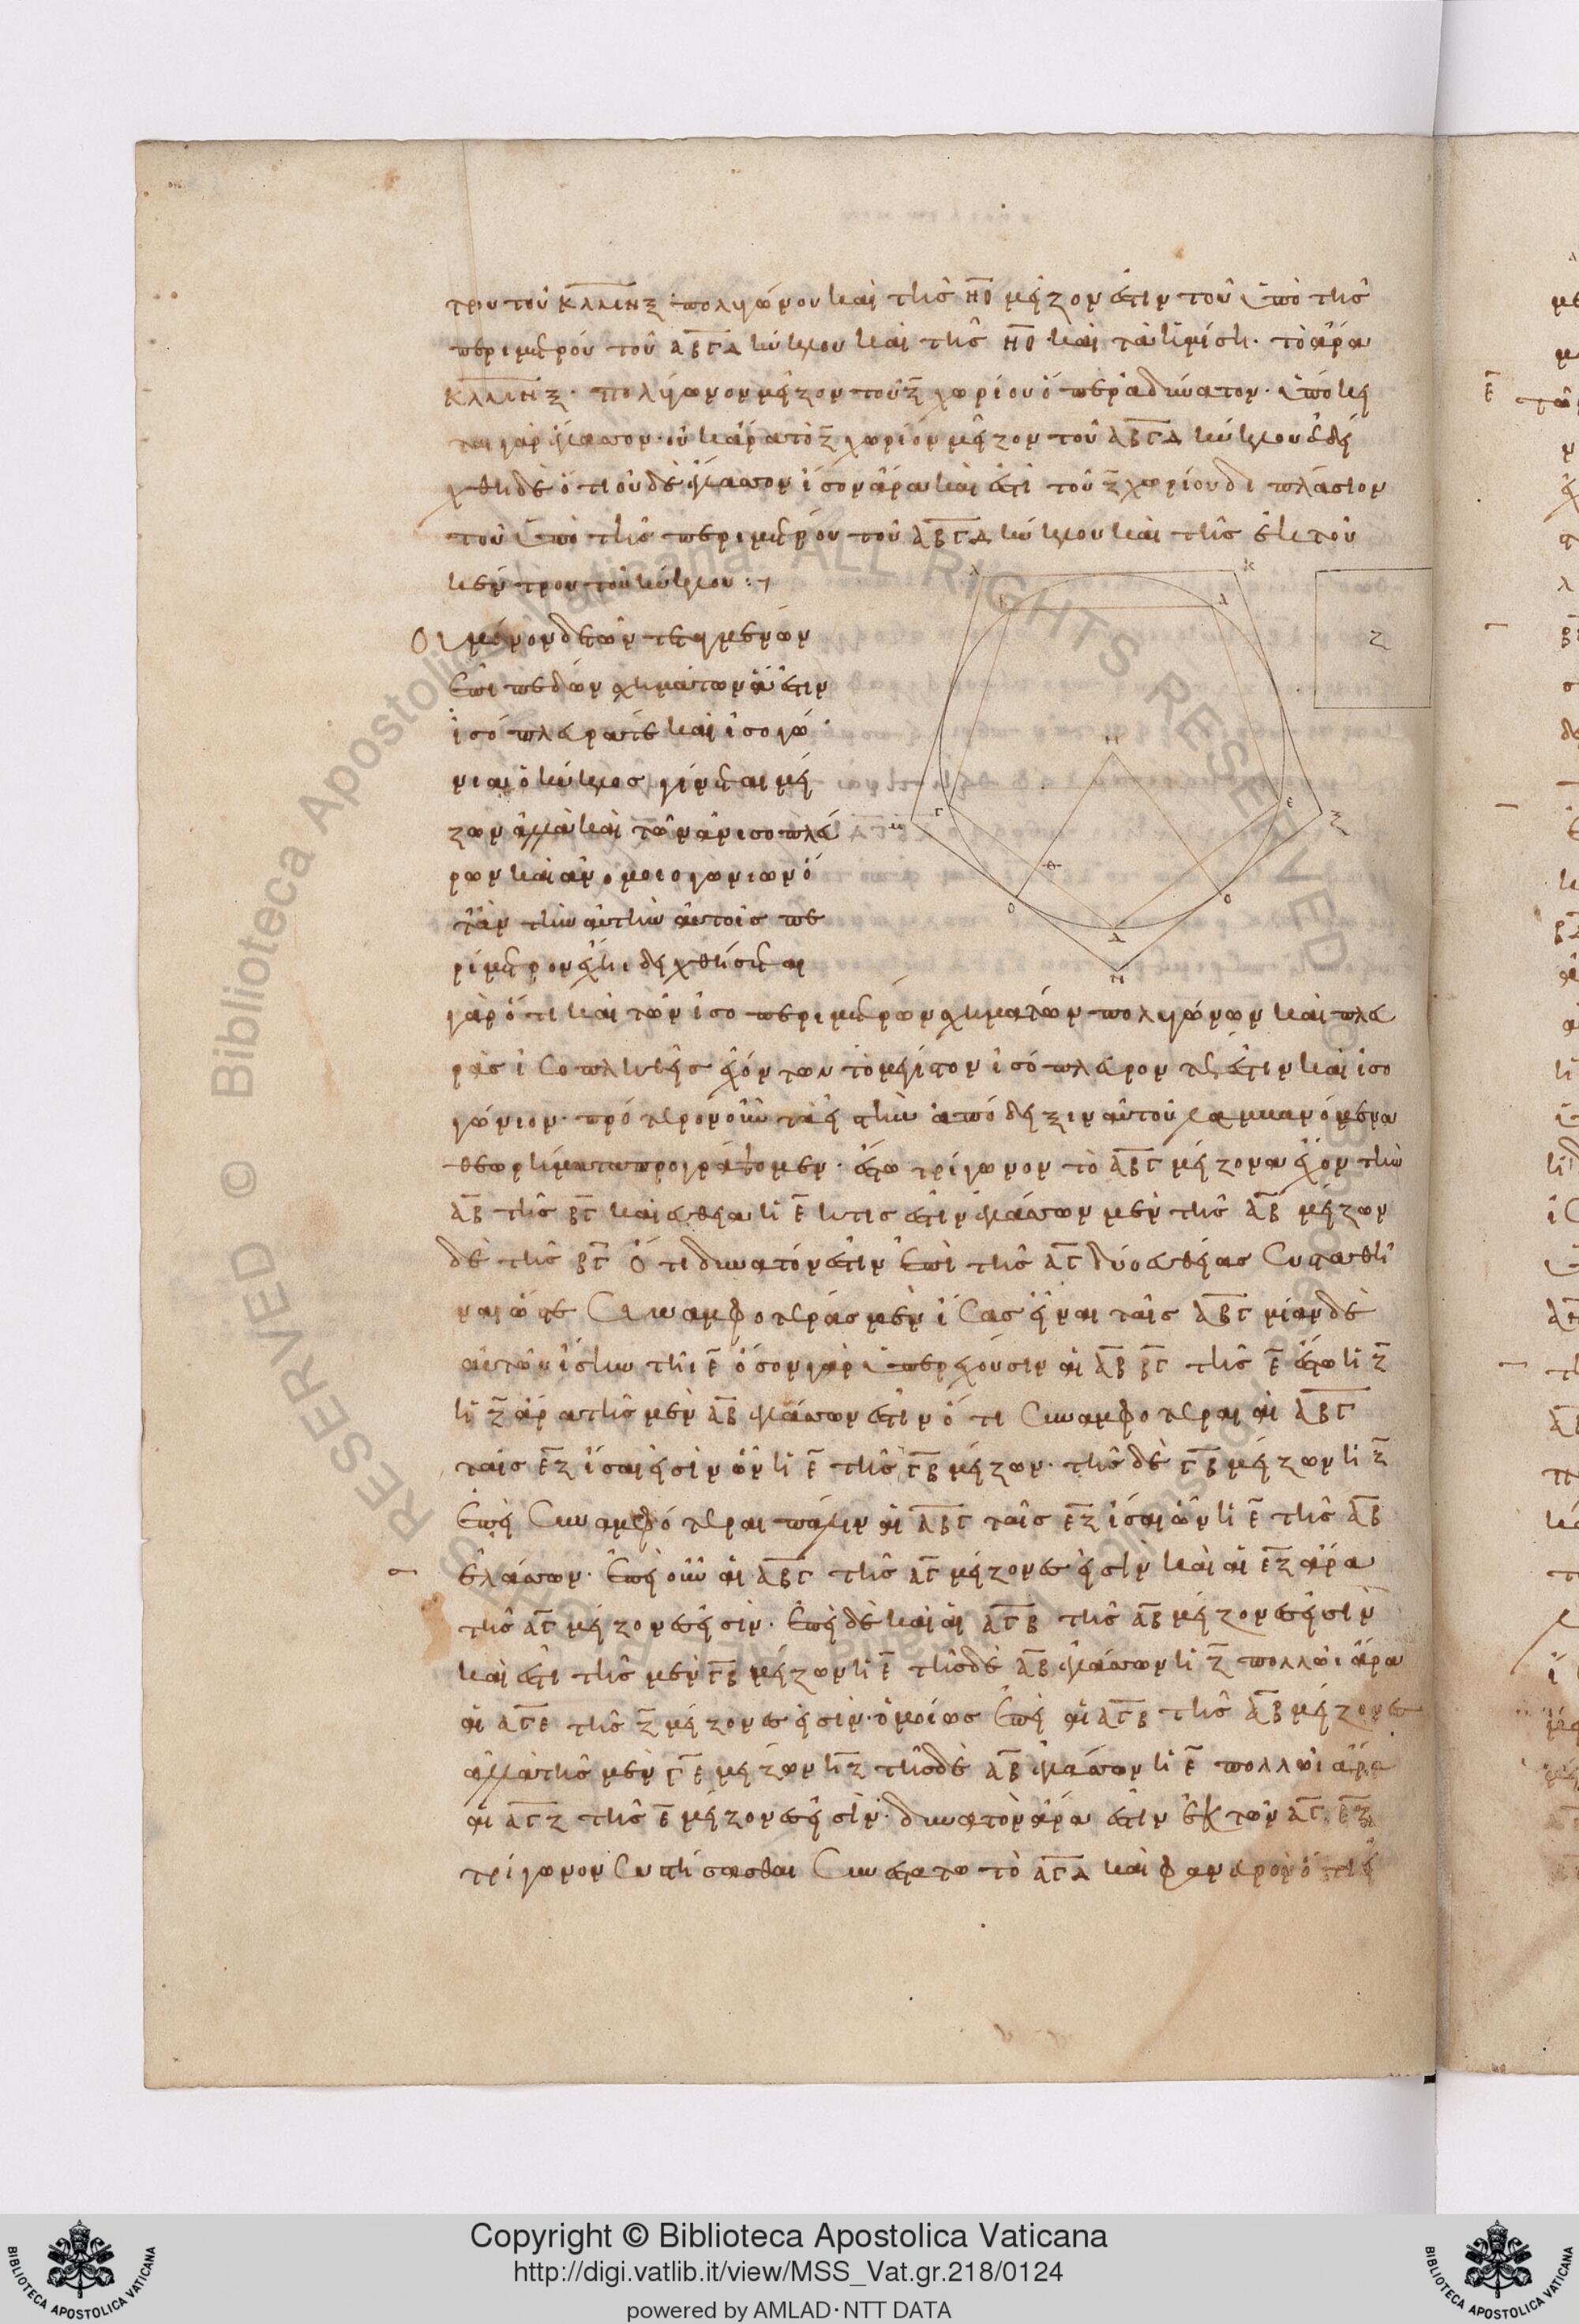 τρου τοῦ ΚΛΜΝΞ πολυγώνου καὶ τῆς ΗΟ μεῖζον ἐστιν τοῦ ὑπὸ τῆς
περιμέτρου τοῦ ΑΒΓΔ κύκλου καὶ τῆς ΗΟ καὶ τὰ ἡμίση· τὸ ἄρα
ΚΛΜΝΞ· πολύγωνον μεῖζον τοῦ Ζ χωρίου ὅπερ ἀδύνατον· ὑπόκει
ται γὰρ ἔλασσον· οὐκ ἄρα τὸ Ζ χωρίον μεῖζον τοῦ ΑΒΓΔ κύκλου ἐδεί
χθη δὲ ὅτι οὐδὲ ἔλασσον ἴσον ἄρα καὶ ἐστι τοῦ Ζ χωρίου διπλάσιον
τοῦ ὑπὸ τῆς περιμέτρου τοῦ ΑΒΓΔ κύκλου καὶ τῆς ἐκ τοῦ
κέντρου τοῦ κύκλου :~
Οὐ μόνον δὲ τῶν τεταγμένων
ἐπιπέδων σχημάτων ἅ ἐστιν
ἰσόπλευρά τε καὶ ἰσογώ
νια ὁ κύκλος γίνεται μεί
ζων ἀλλὰ καὶ τῶν ἀνισοπλεύ
ρων καὶ ἀνομοιογωνίων ὅ
τὰν τὴν αὐτὴν αὐτοῖς πε
ρίμετρον ἔχηι δειχθήσεται
γὰρ ὅτι καὶ τῶν ἰσοπεριμέτρων σχημάτων πολυγώνων καὶ πλευ
ρὰς ἰσοπληθεῖς ἐχόντων τὸ μέγιστον ἰσόπλευρον τέ ἐστιν καὶ ἰσο
γώνιον· πρότερον οὖν τὰ εἰς τὴν ἀπόδειξιν αὐτοῦ λαμβανόμενα
θεωρήματα προγράψομεν· ἔστω τρίγωνον τὸ ΑΒΓ μείζονα ἔχον τὴν
ΑΒ τῆς ΒΓ καὶ εὐθεῖα ἡ Ε ἥτις ἐστὶν ἐλάσσων μὲν τῆς ΑΒ μείζων
δὲ τῆς ΒΓ ὅτι δυνατόν ἐστιν ἐπὶ τῆς ΑΓ δύο εὐθείας συσταθῆ
ναι ὥστε συναμφοτέρας μὲν ἴσας εἶναι ταῖς ΑΒΓ μίαν δὲ
αὐτῶν ἴσην τῆι Ε ὅσον γὰρ ὑπερέχουσιν αἱ ΑΒ ΒΓ τῆς Ε ἔστω ἡ Ζ
ἡ Ζ ἄρα τῆς μὲν ΑΒ ἐλάσσων ἐστὶν ὅτι συναμφότεραι αἱ ΑΒΓ
ταῖς ΕΖ ἴσαι εἰσὶν ὧν ἡ Ε τῆς ΓΒ μείζων· τῆς δὲ ΓΒ μείζων ἡ Ζ
ἐπεὶ συναμφότεραι πάλιν αἱ ΑΒΓ ταῖς ΕΖ ἴσαι ὧν ἡ Ε τῆς ΑΒ
ἐλάσσων· ἐπεὶ οὖν αἱ ΑΒΓ τῆς ΑΓ μείζονες εἰσὶν καὶ αἱ ΕΖ ἄρα
τῆς ΑΓ μείζονες εἰσὶν· ἐπεὶ δὲ καὶ αἱ ΑΓΒ τῆς ΑΒ μείζονες εἰσὶν
καὶ ἔστι τῆς μὲν ΓΒ μείζων ἡ Ε τῆς δὲ ΑΒ ἐλάσσων ἡ Ζ πολλῶι ἄρα
αἱ ΑΓΕ τῆς Ζ μείζονες εἰσὶν· ὁμοίως ἐπεὶ αἱ ΑΓΒ τῆς ΑΒ μείζονες
ἀλλὰ τῆς μὲν ΓΒ μείζων ἡ Ζ τῆς δὲ ΑΒ ἐλάσσων ἡ Ε πολλῶι ἄρα
αἱ ΑΓΖ τῆς Ε μείζονες εἰσὶν· δυνατὸν ἄρα ἐστὶν ἐκ τῶν ΑΓ ΕΖ
τρίγωνον συστήσασθαι συνεστάτω τὸ ΑΓΔ καὶ φανερὸν ὅτι
Copyright © Biblioteca Apostolica Vaticana
http://digi.vatlib.it/view/MSS_Vat.gr.218/0124
powered by AMLAD·NTT DATA